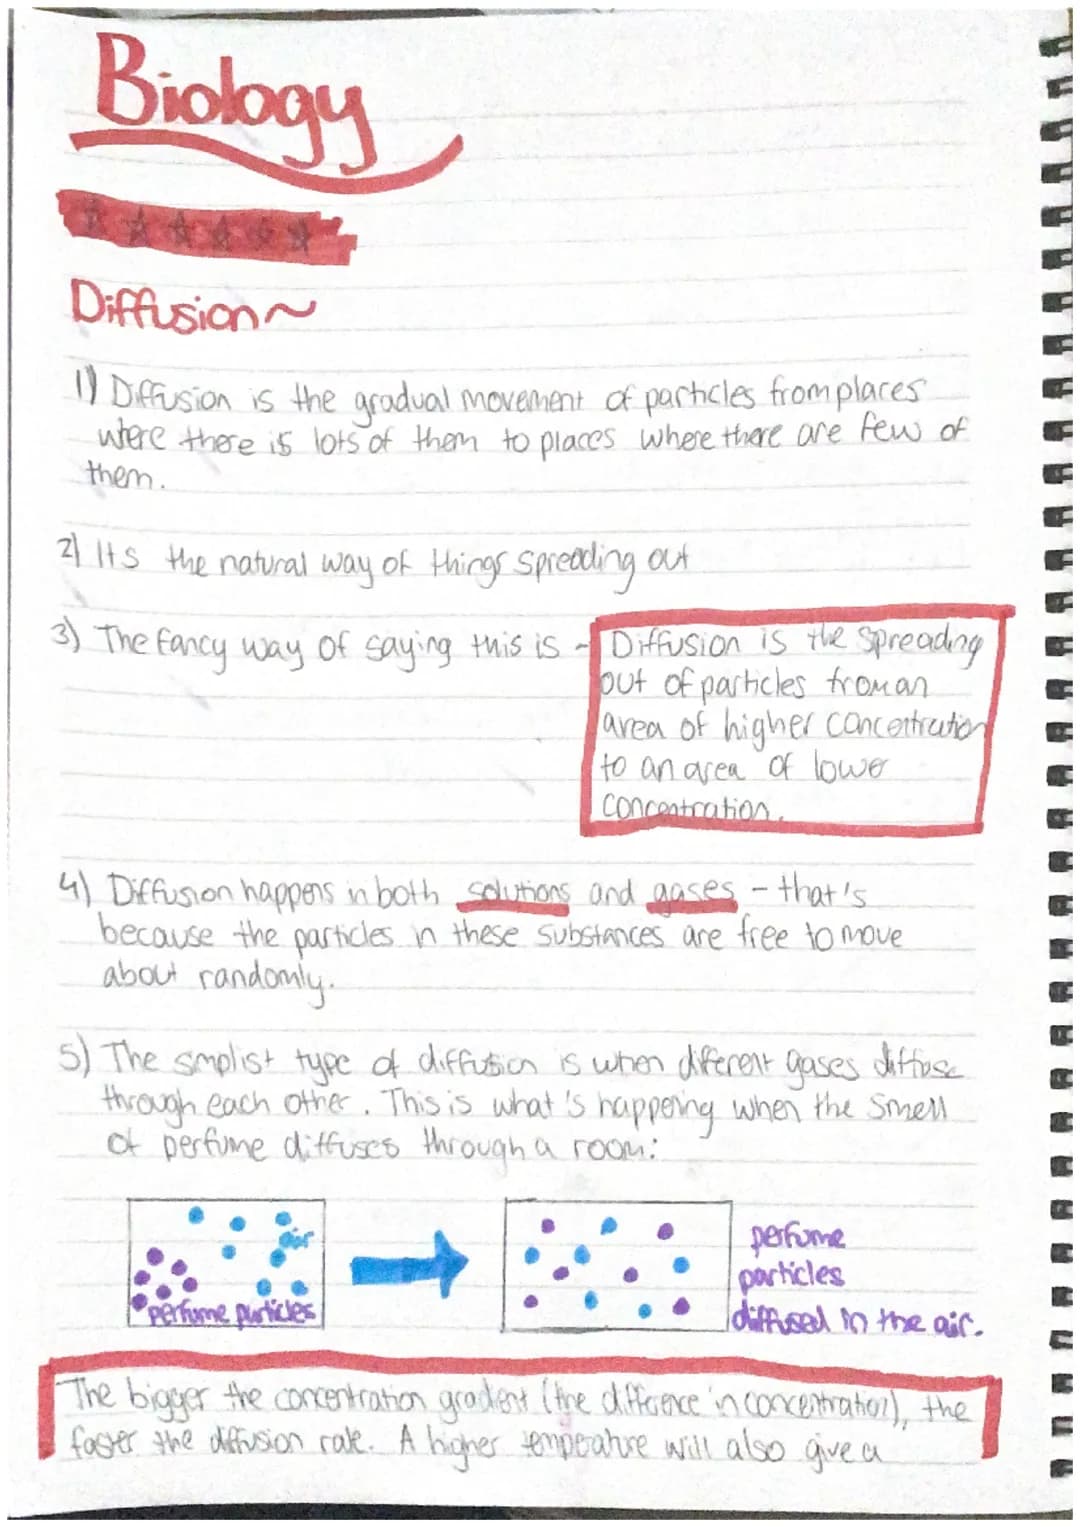 Biology
Diffusion~
1) Diffusion is the gradual movement of particles from places
where there is lots of them to places where there are few of
them.
2) Its the natural way of things spreading out
3) The fancy way of saying this is - Diffusion is the spreading
out of particles from an
area of higher concentration
to an area of lower
concentration.
4) Diffusion happens in both solutions and gases - that's
because the particles in these substances are free to move
about randomly.
5) The simplist type of diffusion is when different gases diffuse
through each other. This is what's happening when the smell
of perfume diffuses through a room:
air
perfume particles
perfume
particles
diffused in the air.
The bigger the concentration gradent (the difference in concentration), the
faster the diffusion rate. A higher temperature will also give a